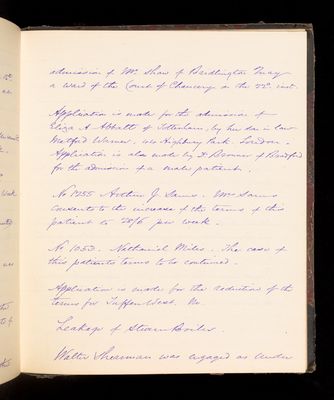 admission of Mr. Shaw of Bridlington Quay
a ward of the Court of Chancery on the 22nd inst.
Application is made for the admission of
Eliza A Abbatt of Tottenham, by her son in law
Metford Warner. 420 Highbury Park. London.
Application is also made by Dr Bronner of Bradford
for the admission of a male patient.
No 1255 Arthur J. Sams. Mr Sams
consents to the increase of the terms of this
patient to 28/6 per week.
No 1050. Nathaniel Miles. The case of
this patients terms to be continued.
Application is made for the reduction of the
terms for Tuffen West. No.
Leakage of Steam Boiler.
Walter Shearman was engaged as Under